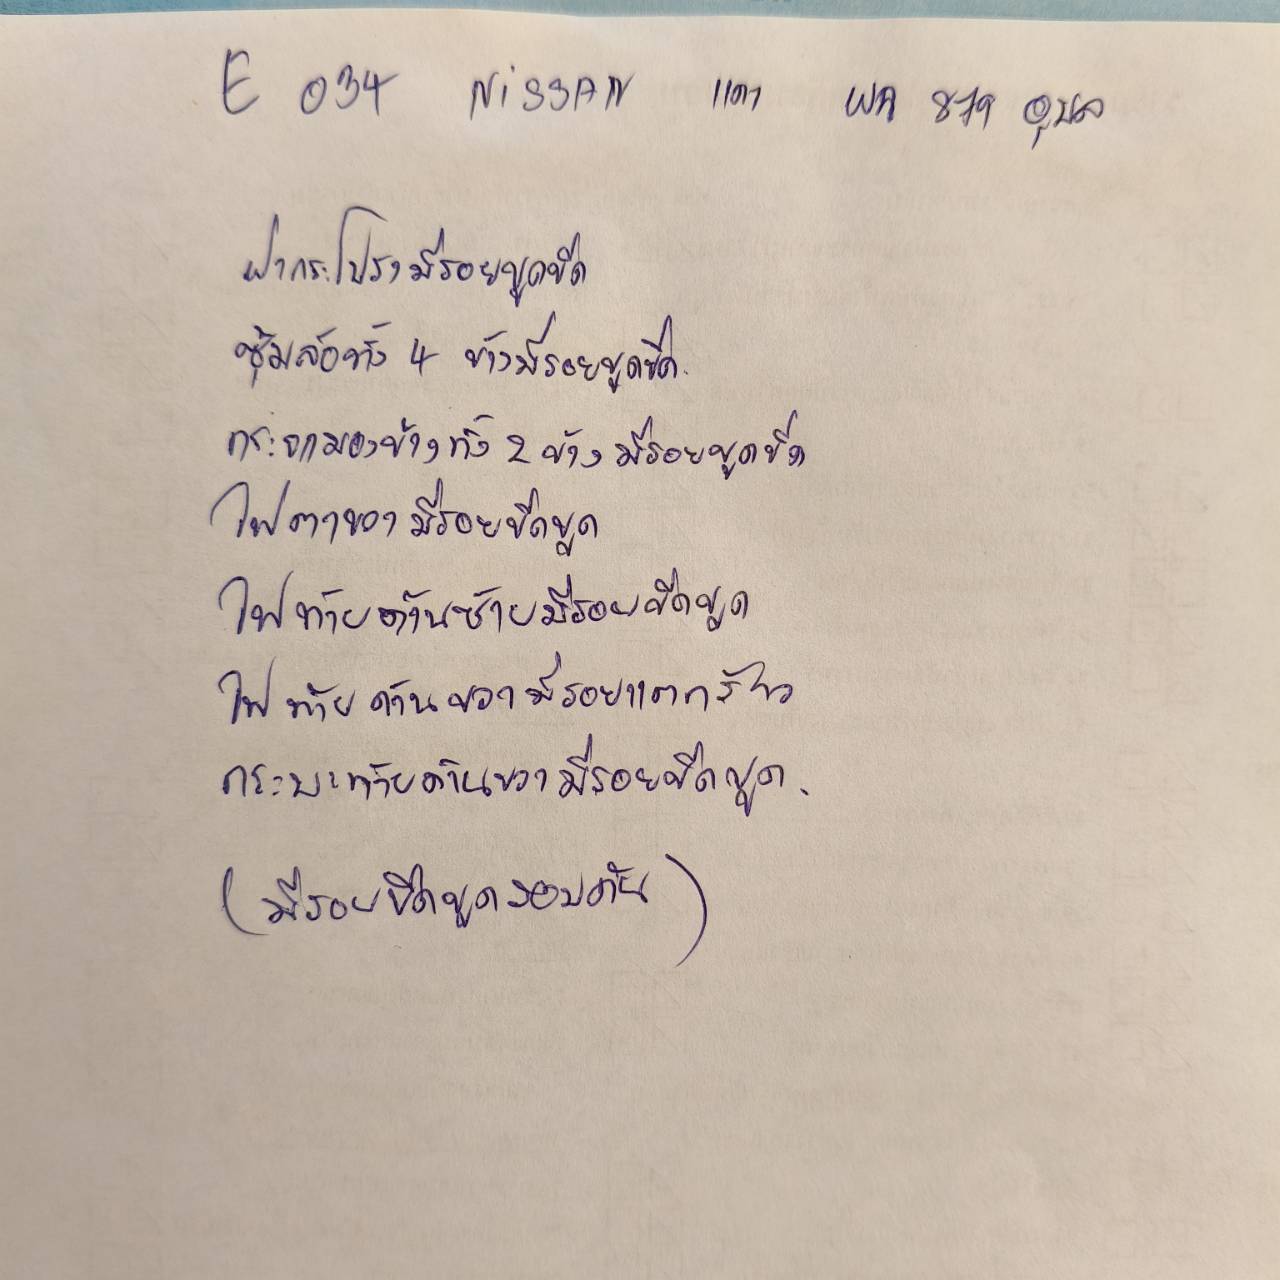 E 034 NISSAN แดง 879 อุบล
ฝากระโปรงมีรอยขูดขีด
ซุ้มล้อทั้ง 4 ข้างมีรอยขูดขีด.
กระจกมองข้างทั้ง 2 ข้าง มีรอยขูดขีด
ไฟตาขวา มีรอยขีดขูด
ไฟท้ายด้านซ้ายมีรอยขีดขูด
ไฟท้ายด้านขวามีรอยแตกร้าว
กระบะท้ายด้านขวามีรอยขีดขูด.
(มีรอยขีดขูดรอบคัน)